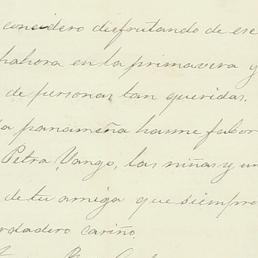 considero disfrutando de ese
ahora en la primavera y
de personas tan queridas.
la panameña hanme fabor
Petra, Vango, las niñas y un
de tu amiga que siempre
rdadero cariño